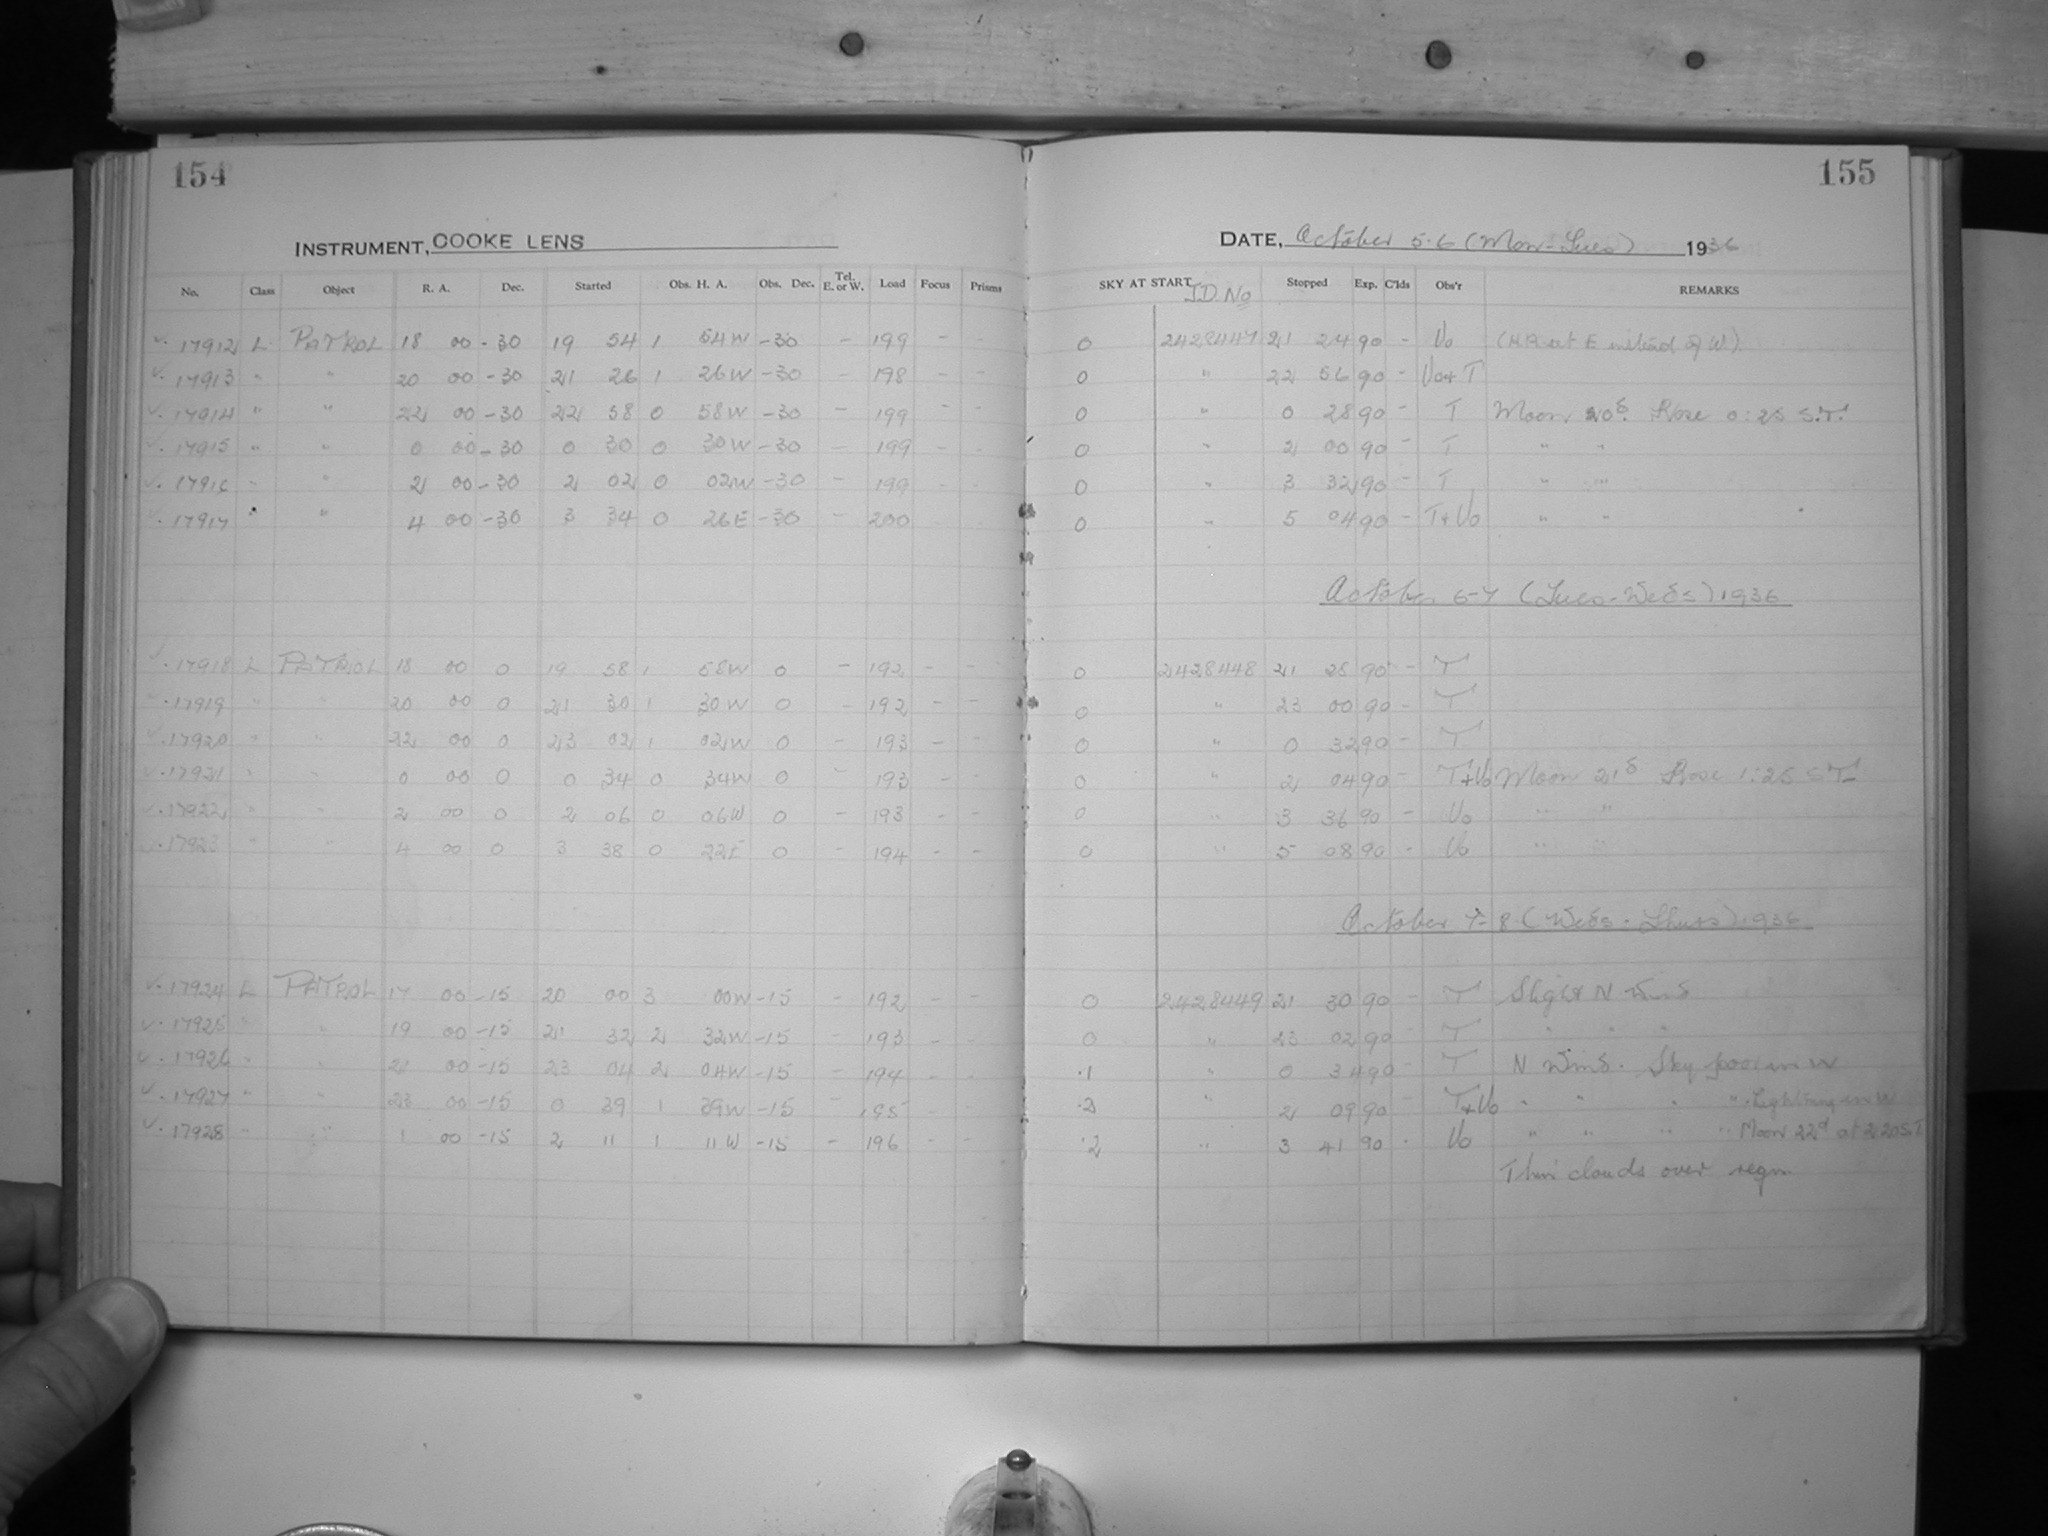 154
155
INSTRUMENT, COOKE LENS
DATE, October 5-6 (Mon-Tues) 1936
No. Class Object R. A. Dec. Started Obs. H. A. Obs. Dec. Tel. E. or W. Load Focus Prisms SKY AT START J.D. No Stopped Exp. C'lds Obs'r REMARKS
17912 L PATROL 18 00 -30 19 54 1 54W -30 - 199 - - 0 2428447 21 24 90 - Vo (HR set E instead of W)
17913 " " 20 00 -30 21 26 1 26W -30 - 198 - - 0 " 22 56 90 - Vo+T
17914 " " 22 00 -30 22 58 0 58W -30 - 199 - - 0 " 0 28 90 - T Moon 20d. Rose 0:25 S.T.
17915 " " 0 00 -30 0 30 0 30W -30 - 199 - - 0 " 2 00 90 - T " "
17916 " " 2 00 -30 2 02 0 02W -30 - 199 - - 0 " 3 32 90 - T " "
17917 " " 4 00 -30 3 34 0 26E -30 - 200 - - 0 " 5 04 90 - T+Vo " "
October 6-7 (Tues-Weds) 1936
17918 L PATROL 18 00 0 19 58 1 58W 0 - 192 - - 0 2428448 21 28 90 - T
17919 " " 20 00 0 21 30 1 30W 0 - 192 - - 0 " 23 00 90 - T
17920 " " 22 00 0 23 02 1 02W 0 - 193 - - 0 " 0 32 90 - T
17921 " " 0 00 0 0 34 0 34W 0 - 193 - - 0 " 2 04 90 - T+Vo Moon 21d Rose 1:25 ST
17922 " " 2 00 0 2 06 0 06W 0 - 193 - - 0 " 3 36 90 - Vo " "
17923 " " 4 00 0 3 38 0 22E 0 - 194 - - 0 " 5 08 90 - Vo " "
October 7-8 (Weds-Thurs) 1936
17924 L PATROL 17 00 -15 20 00 3 00W -15 - 192 - - 0 2428449 21 30 90 - T Slight N Wind
17925 " " 19 00 -15 21 32 2 32W -15 - 193 - - 0 " 23 02 90 - T " " "
17926 " " 21 00 -15 23 04 2 04W -15 - 194 - - .1 " 0 34 90 - T N Wind. Sky poor in W
17927 " " 23 00 -15 0 39 1 39W -15 - 195 - - .2 " 2 09 90 - T+Vo " " " " Lightning in W
17928 " " 1 00 -15 2 11 1 11W -15 - 196 - - .2 " 3 41 90 - Vo " " " " Moon 22d at 2 20 S.T.
Thin clouds over regn.